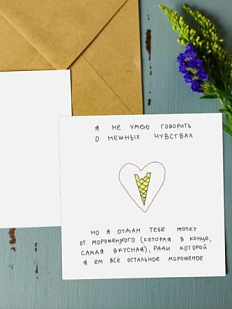 Я НЕ УМЕЮ ГОВОРИТЬ
О НЕЖНЫХ ЧУВСТВАХ
НО Я ОТДАМ ТЕБЕ ПОПКУ
ОТ МОРОЖЕНОГО (КОТОРАЯ В КОНЦЕ,
САМАЯ ВКУСНАЯ), РАДИ КОТОРОЙ
Я ЕМ ВСЁ ОСТАЛЬНОЕ МОРОЖЕНОЕ